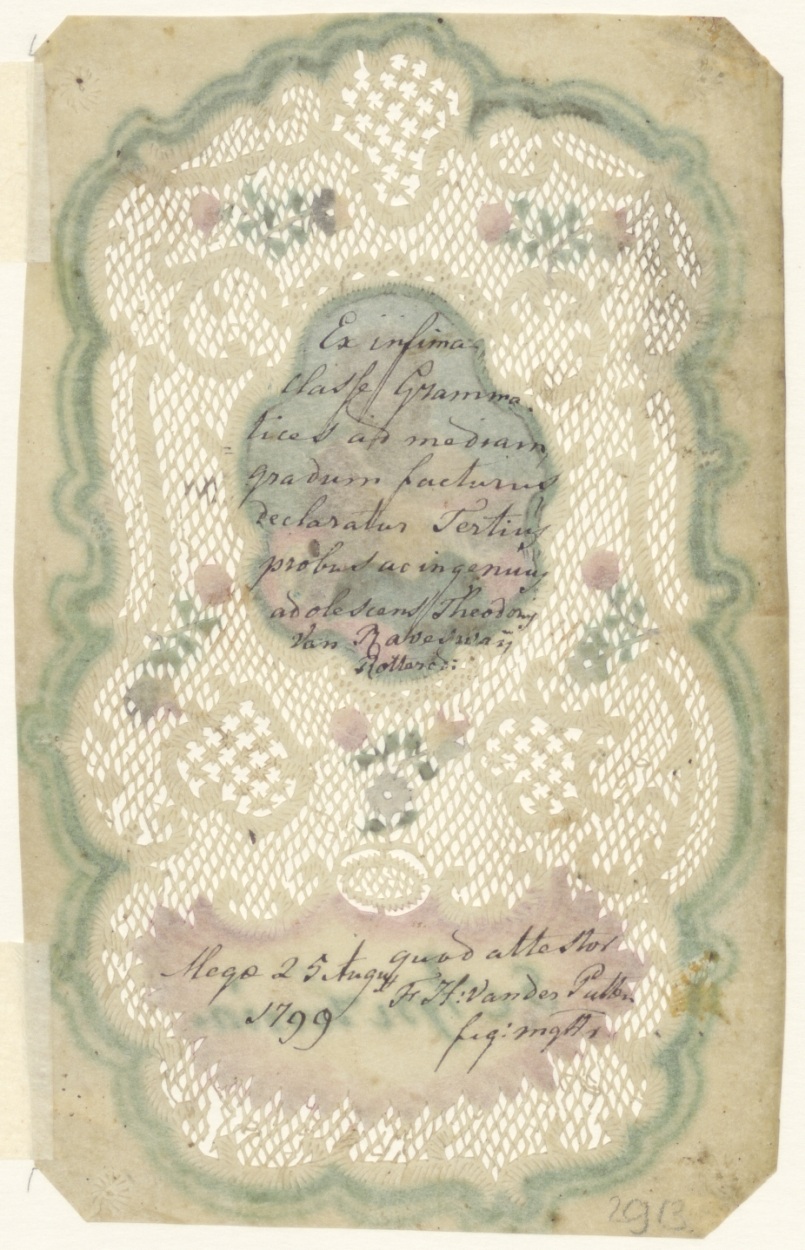 Ex infima
classe Gramma
tices ad mediam
gradum facturus
declaratur Tertius
probus ac ingenuus
adolescens Theodorus
Van Raveswaÿ
Rotterd:
Megæ 25 Augu
1799
quod attestor
Fr H: Van der Putten
fig: mgtr
2913